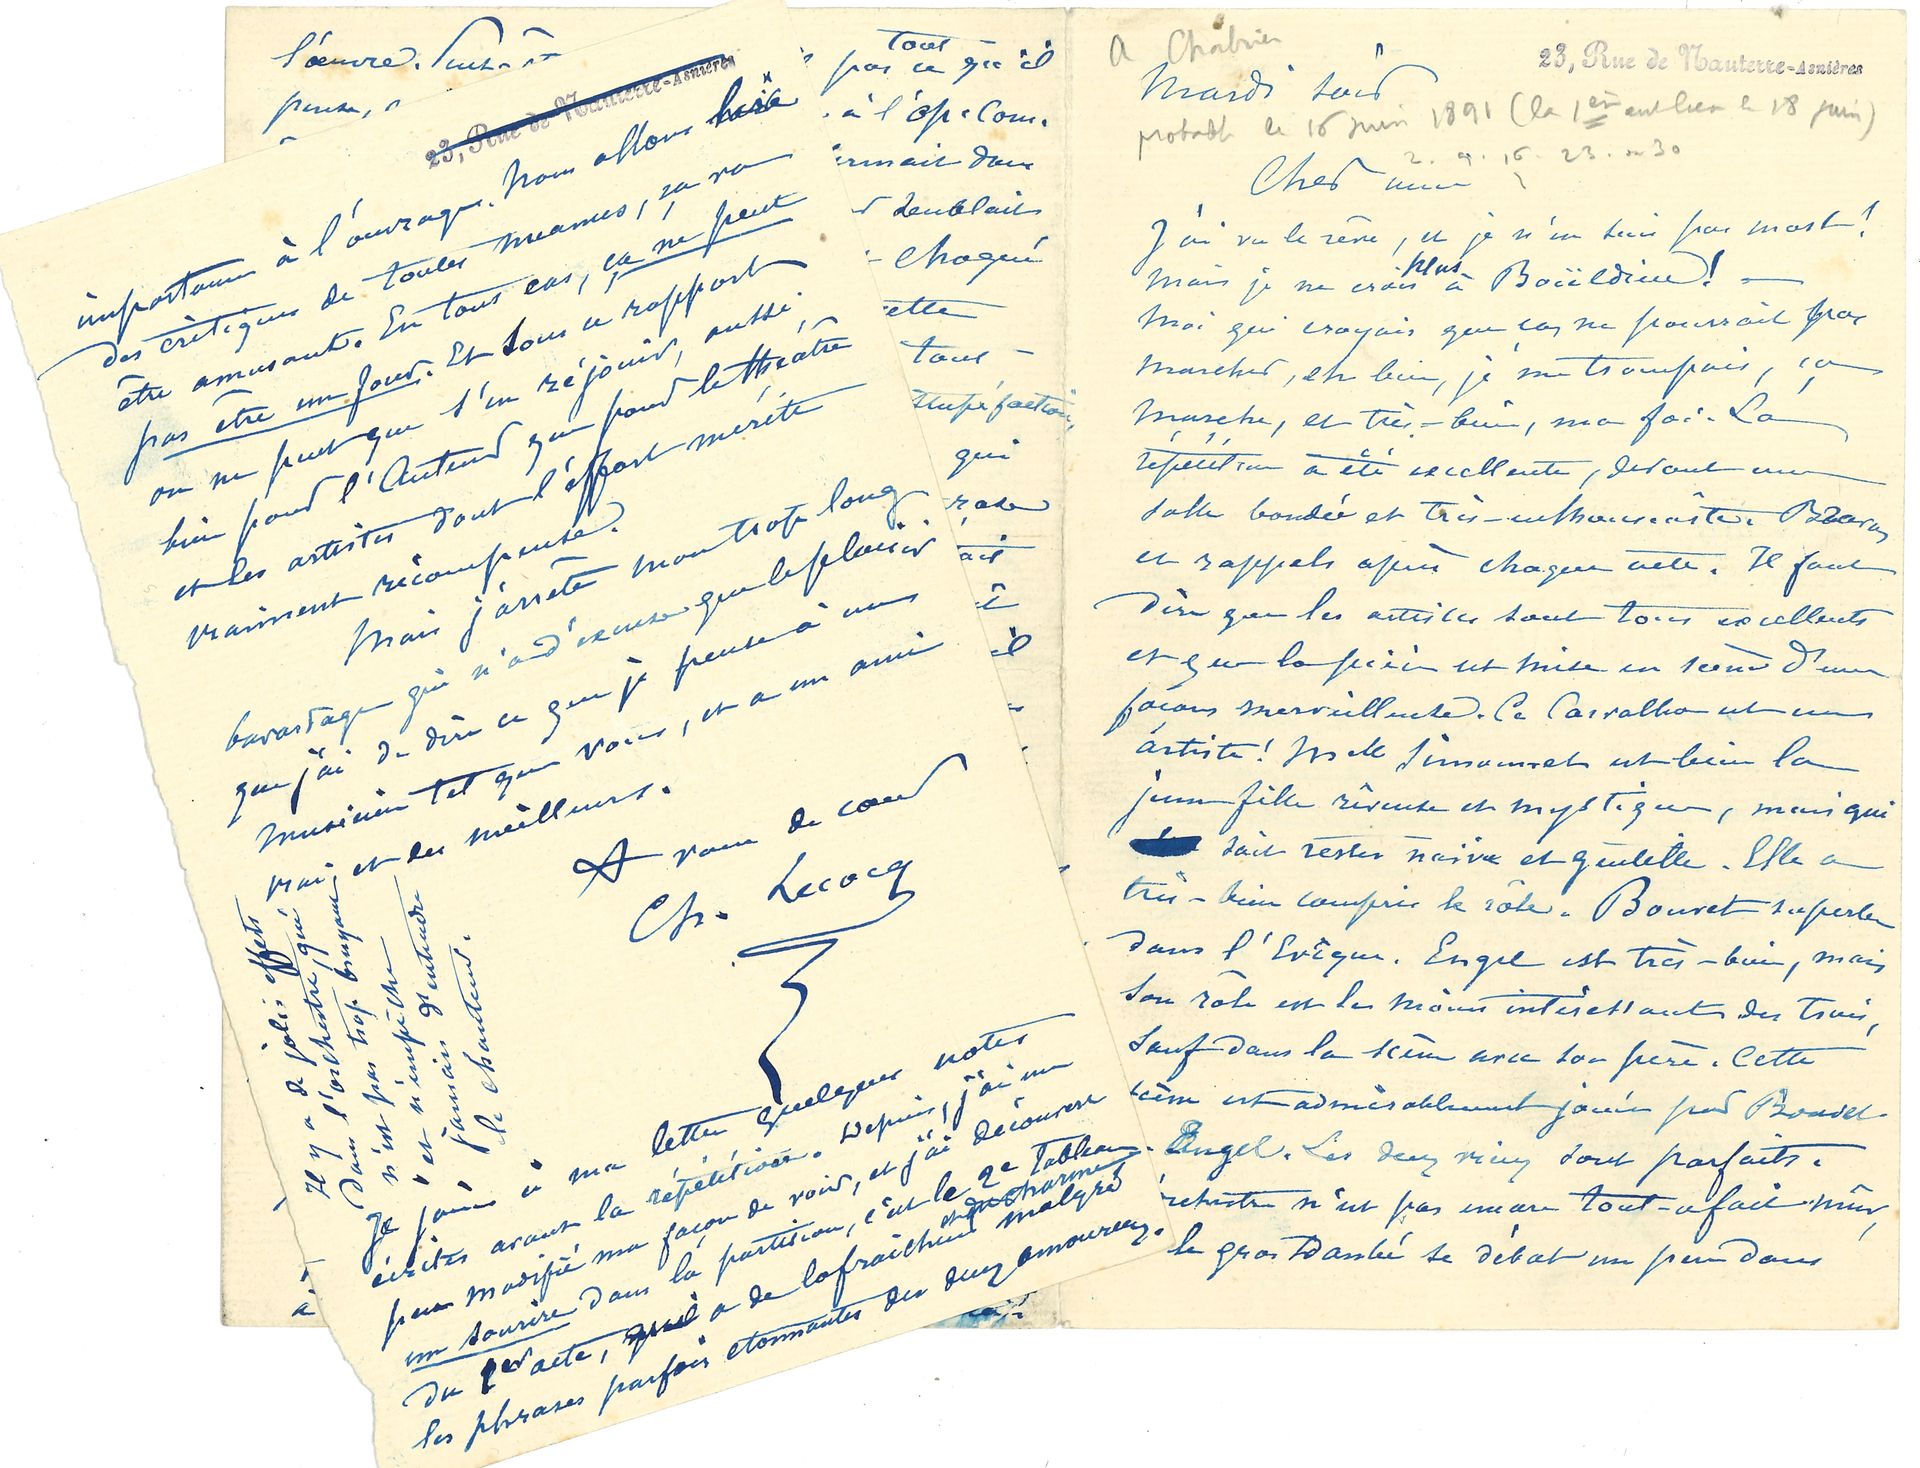 A Chabrier
23, Rue de Nanterre-Asnières
Mardi soir
probablt le 16 juin 1891 (la 1ère eut lieu le 18 juin)
2. 9. 16. 23. ou 30
Cher ami
J'ai vu le rêve, et je n'en suis pas mort!
Mais je ne crois plus à Boïeldieu! —
Moi qui croyais que ça ne pourrait pas
marcher, eh bien, je me trompais, ça
marche, et très-bien, ma foi. La
répétition a été excellente, devant une
salle bondée et très-enthousiaste. Bravos
et rappels après chaque acte. Il faut
dire que les artistes sont tous excellents
et que la pièce est mise en scène d'une
façon merveilleuse. Ce Carvalho est un
artiste! Mlle Simonnet est bien la
jeune fille rêveuse et mystique, mais qui
sait rester naïve et gentille. Elle a
très-bien compris le rôle. Bouvet superbe
dans l'Evêque. Engel est très-bien, mais
son rôle est le moins intéressant des trois,
sauf dans la scène avec son père. Cette
scène est admirablement jouée par Bouvet
Engel. Les deux vieux sont parfaits.
n'est pas encore tout-à-fait mûr,
le gros Danbé se débat un peu dans
l'œuvre.
pense,
tout
pas ce qu'il
à l'op. Com.
dans
semblait
chaque
cette
tout
stupéfaction,
qui
rose
ait
et
il
23, Rue de Nanterre-Asnières
importance à l'ouvrage. Nous allons lire
des critiques de toutes nuances, ça va
être amusant. En tous cas, ça ne peut
pas être un four. Et sous ce rapport
on ne peut que s'en réjouir, aussi
bien pour l'Auteur que pour le théâtre
et les artistes dont l'effort mérite
vraiment récompense.
Mais j'arrête mon trop long
bavardage qui n'a d'excuse que le plaisir
que j'ai de dire ce que je pense à un
musicien tel que vous, et à un ami
vrai, et des meilleurs.
A vous de cœur
Ch. Lecocq
Je joins à ma lettre quelques notes
écrites avant la répétition. Depuis, j'ai un
peu modifié ma façon de voir, et j'ai découvert
un sourire dans la partition, c'est le 2e tableau
du 1er acte, qui a de la fraîcheur et du charme malgré
les phrases parfois étonnantes des deux amoureux.
Il y a de jolis effets
dans l'orchestre, qui
n'est pas trop bruyant
et n'empêche
jamais d'entendre
le chanteur.